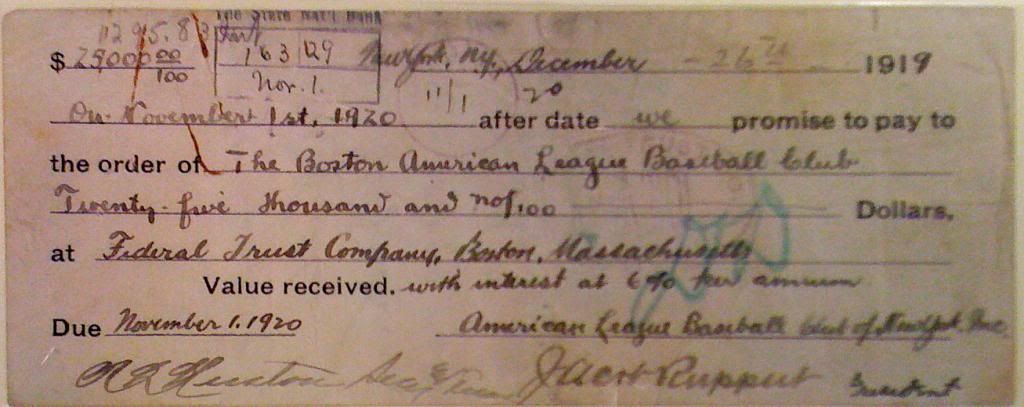 The State Nat'l Bank
1295.83
$ 25000 00/100
163129
Nov. 1.
New York, N.Y., December 26th 1919
11/1 20
On November 1st, 1920 after date we promise to pay to
the order of The Boston American League Baseball Club
Twenty-five thousand and no/100 Dollars,
at Federal Trust Company, Boston, Massachusetts
Value received. with interest at 6% per annum
Due November 1. 1920 American League Baseball Club of New York, Inc.
Secy & Treas Jacob Ruppert President